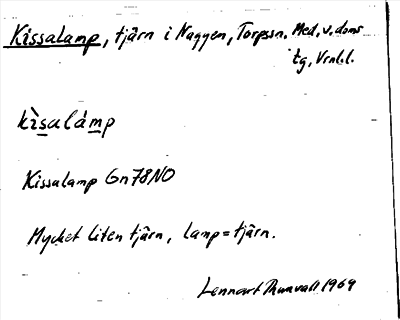 Kissalamp, tjärn i Naggen, Torpssn. Med. v. doms
tg, Vrnl.l.
kìsalámp
Kissalamp Gn78NO
Mycket liten tjärn, lamp=tjärn.
Lennart Thunvall 1969